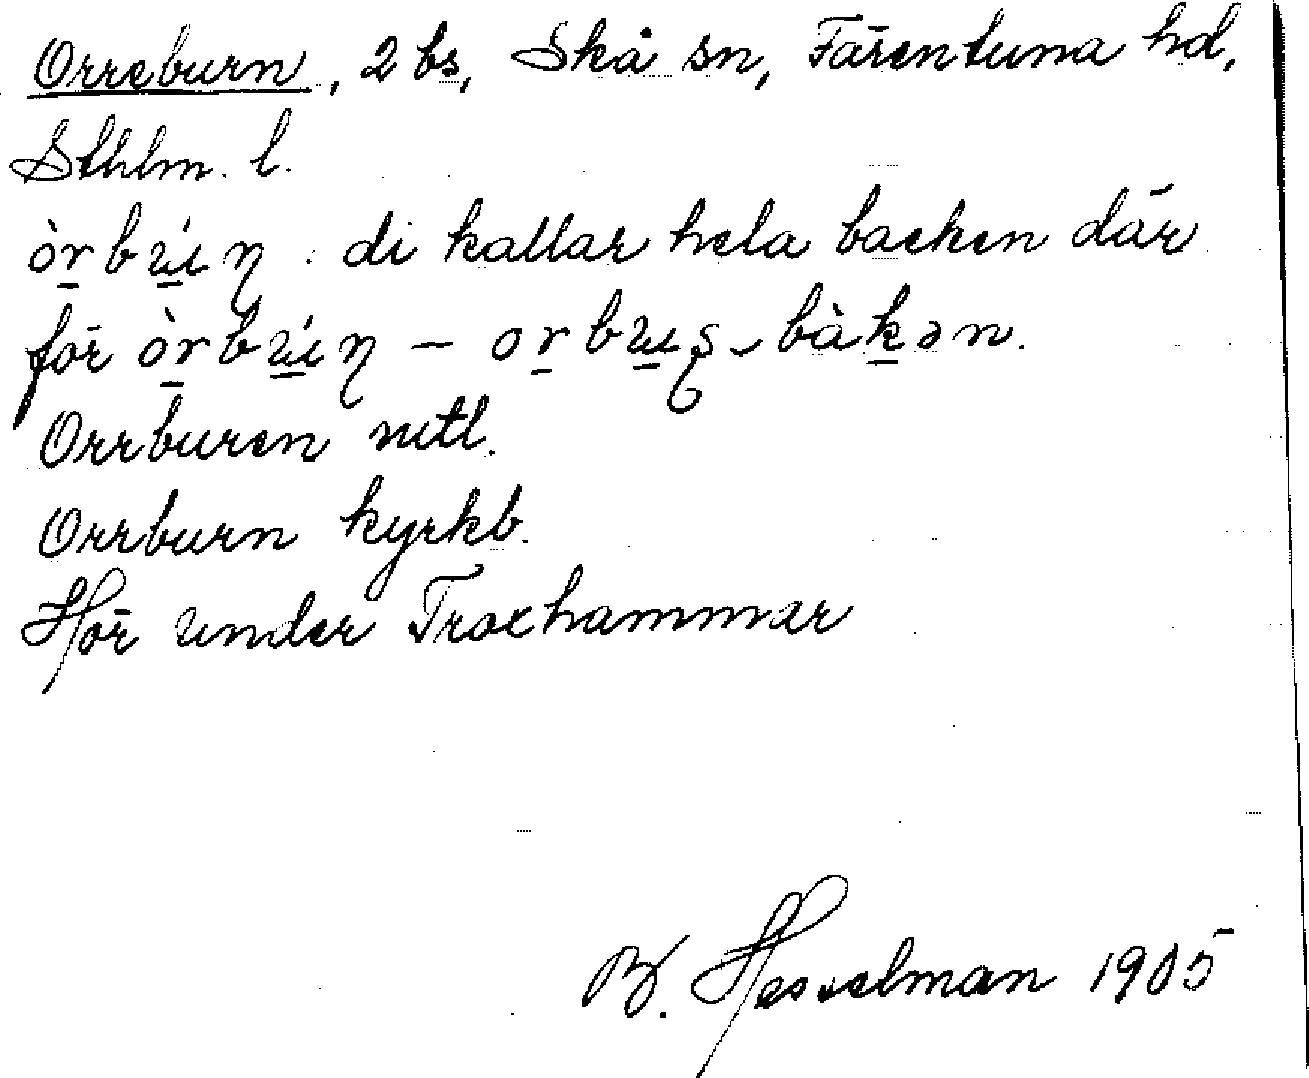 Orreburn, 2 bs, Skå sn, Färentuna hd,
Sthlm. l.
òrbu̇́ıṇ : di kallar hela backen där
för òrbu̇́ıṇ – orbuıʂ-bàkən.
Orrburen mtl.
Orrburn kyrkb.
Hör under Troxhammar
B. Hesselman 1905